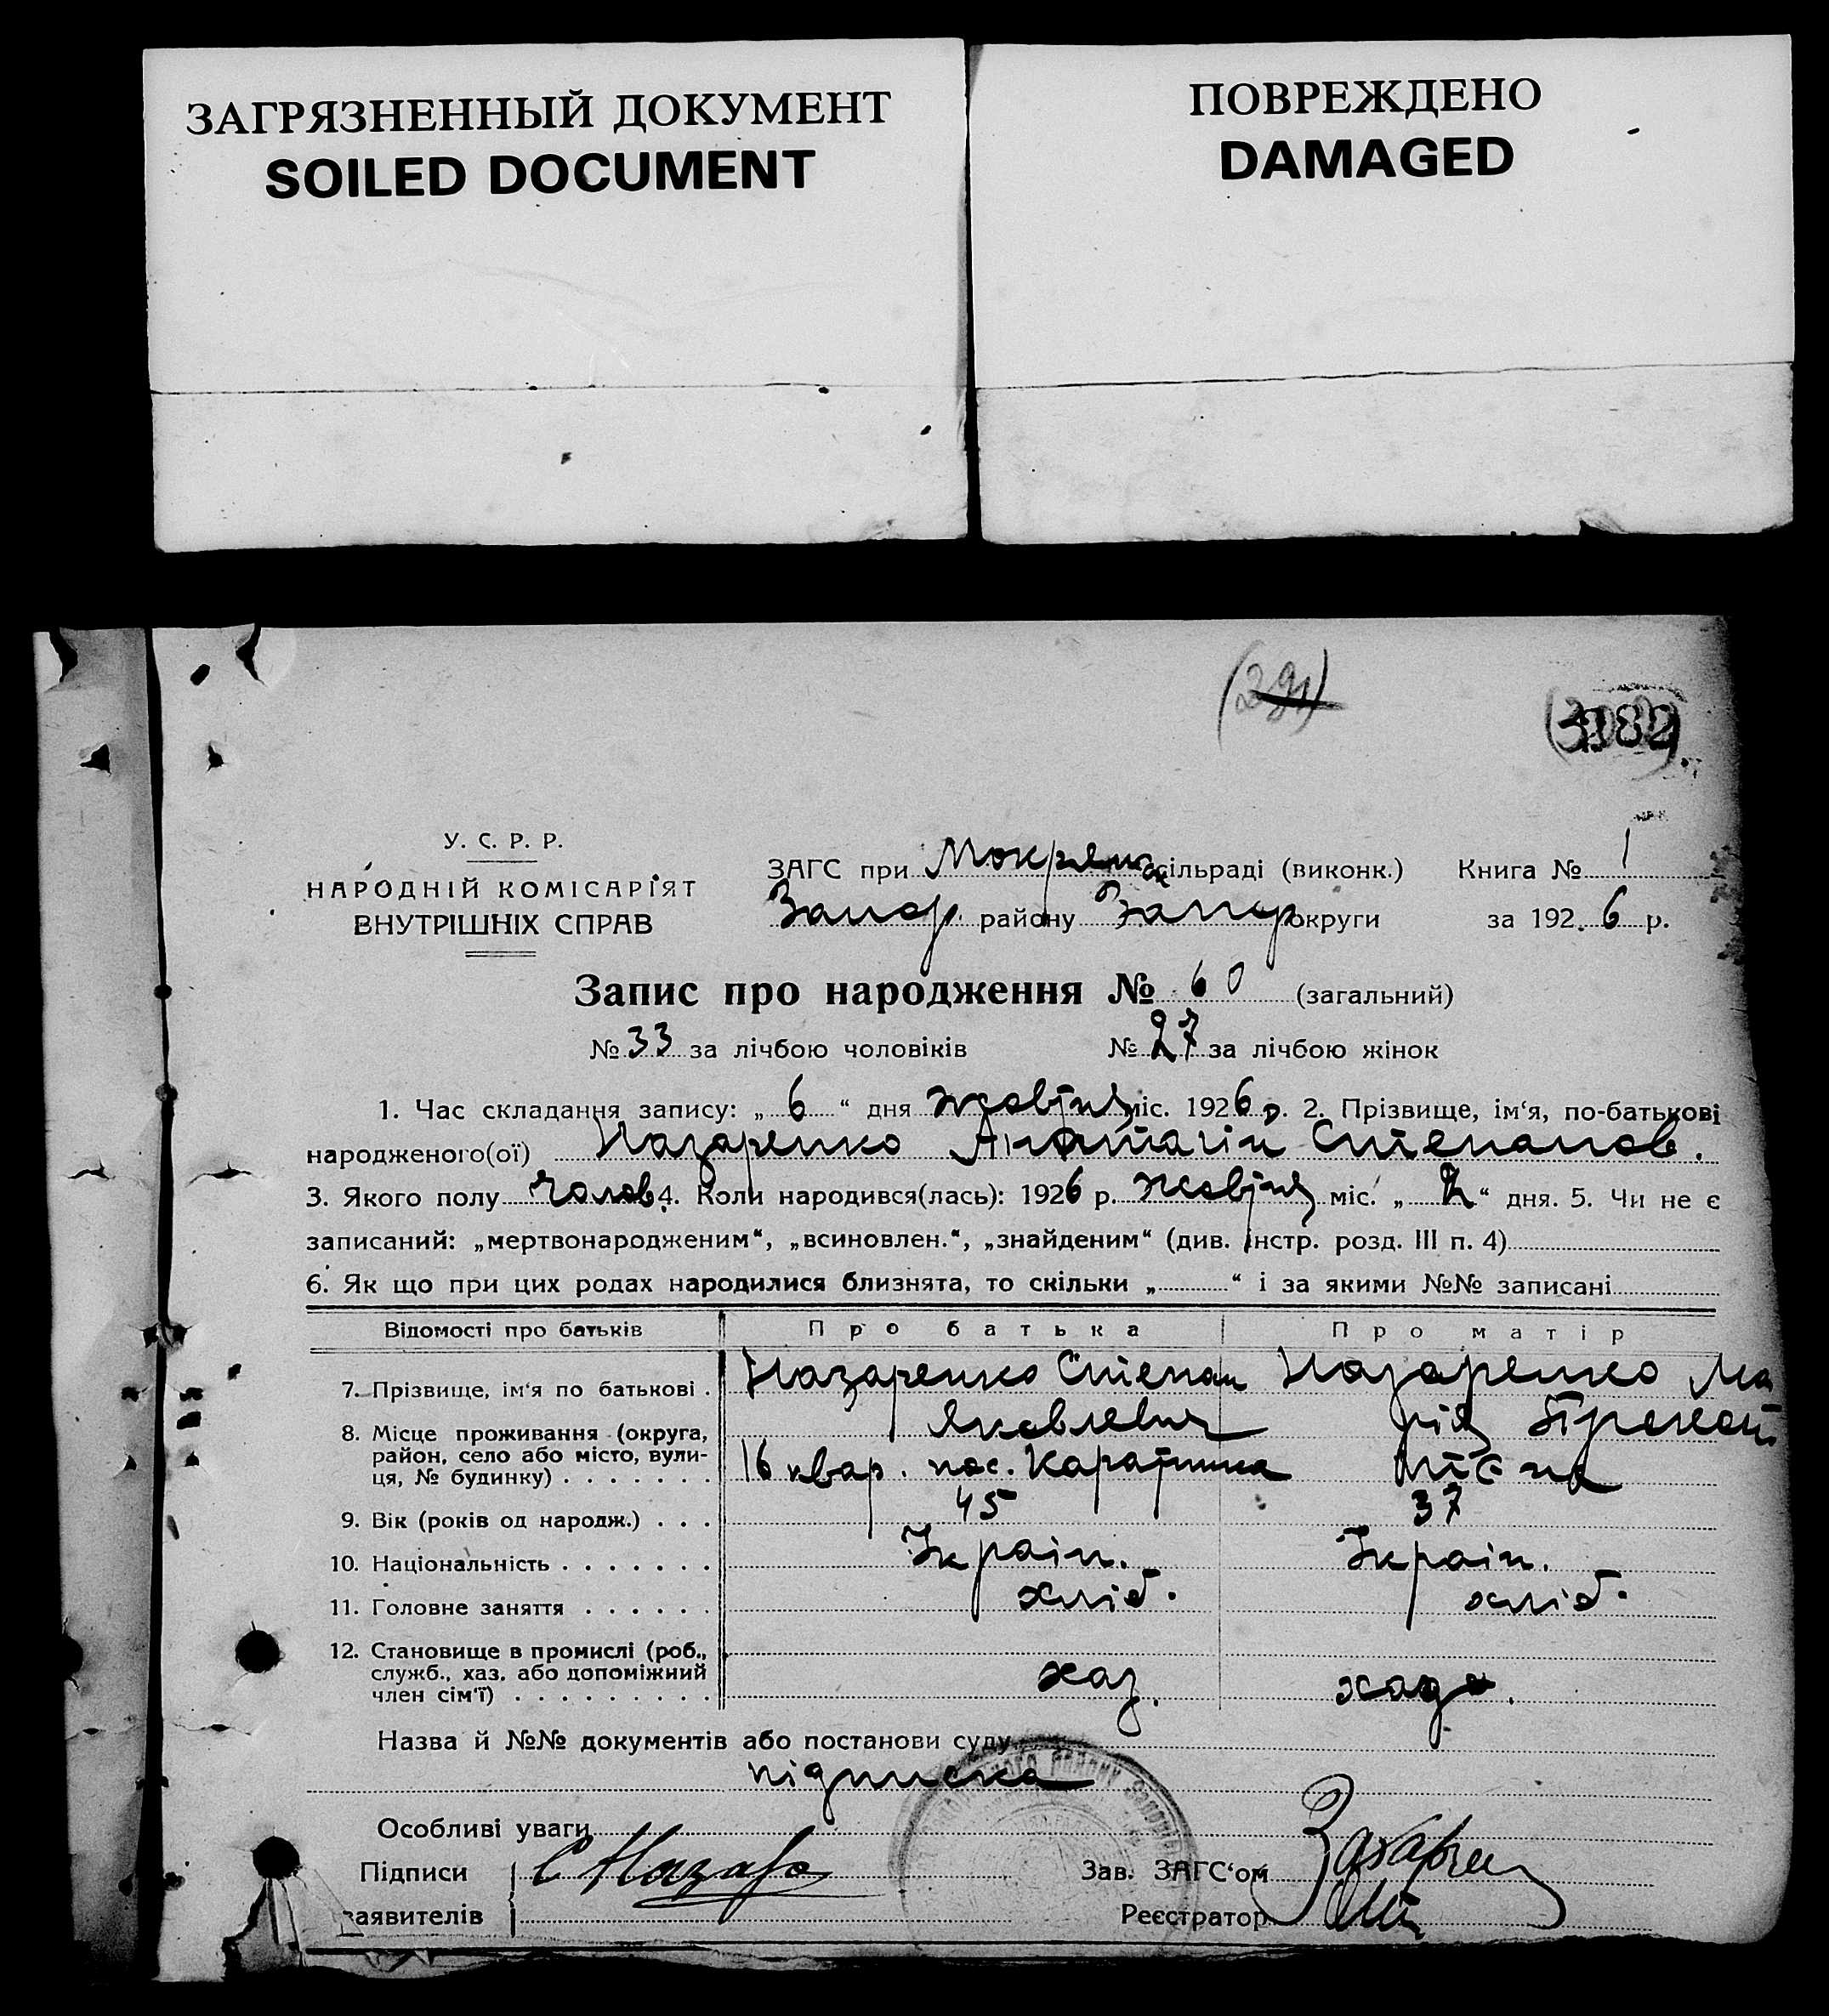 ЗАГРЯЗНЕННЫЙ ДОКУМЕНТ
SOILED DOCUMENT
ПОВРЕЖДЕНО
DAMAGED
У. С. Р. Р.
НАРОДНІЙ КОМІСАРІЯТ
ВНУТРІШНІХ СПРАВ
ЗАГС при Мокрянск сільраді (виконк.) Книга № 1
Запор. району Запор округи за 192 6 р.
Запис про народження № 60 (загальний)
№ 33 за лічбою чоловіків № 27 за лічбою жінок
1. Час складання запису: „ 6 “ дня жовтня міс. 1926 р. 2. Прізвище, ім‘я, по-батькові
народженого(ої) Назаренко Анатолій Степанов.
3. Якого полу чолов. 4. Коли народився(лась): 1926 р. жовтня міс. „ 2 “ дня. 5. Чи не є
записаний: „мертвонародженим“, „всиновлен.“, „знайденим“ (див. інстр. розд. III п. 4)
6. Як що при цих родах народилися близнята, то скільки „ “ і за якими №№ записані
Відомості про батьків Про батька Про матір
7. Прізвище, ім‘я по батькові . Назаренко Степан Назаренко Ма
Яковлевич рія
8. Місце проживання (округа,
район, село або місто, вули-
ця, № будинку) . . . . . . . 16 квар. пос.
9. Вік (років од народж.) . . . 45 37
10. Національність . . . . . . . Україн. Україн.
11. Головне заняття . . . . . . хліб. хліб.
12. Становище в промислі (роб.,
служб., хаз. або допоміжний
член сім‘ї) . . . . . . . . . хаз.
Назва й №№ документів або постанови суду
підписка
Особливі уваги
Підписи С Назаре
заявителів
Зав. ЗАГС‘ом
Реєстратор